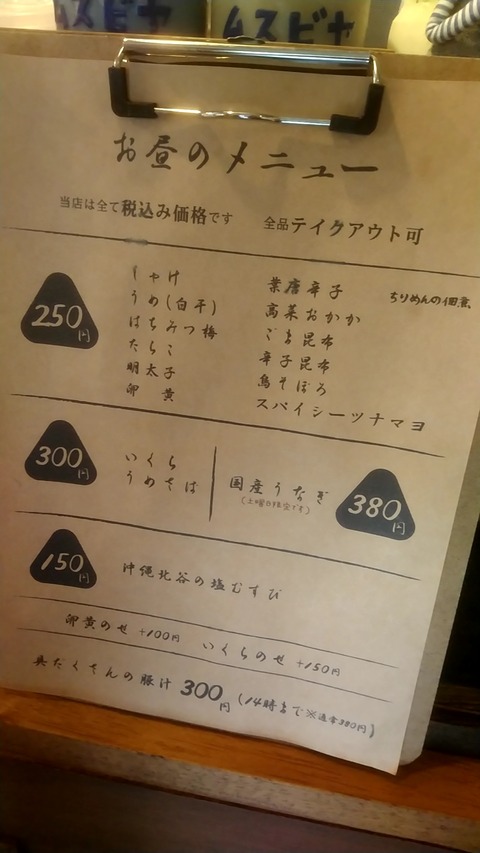 ムスビヤ
ムスビヤ
お昼のメニュー
当店は全て税込み価格です 全品テイクアウト可
250円
しゃけ
うめ(白干)
はちみつ梅
たらこ
明太子
卵黄
葉唐辛子
高菜おかか
ごま昆布
辛子昆布
鳥そぼろ
スパイシーツナマヨ
ちりめんの佃煮
300円
いくら
うめさば
国産うなぎ
(土曜日限定です)
380円
150円
沖縄北谷の塩むすび
卵黄のせ +100円 いくらのせ +150円
具たくさんの豚汁 300円 (14時まで※通常380円)